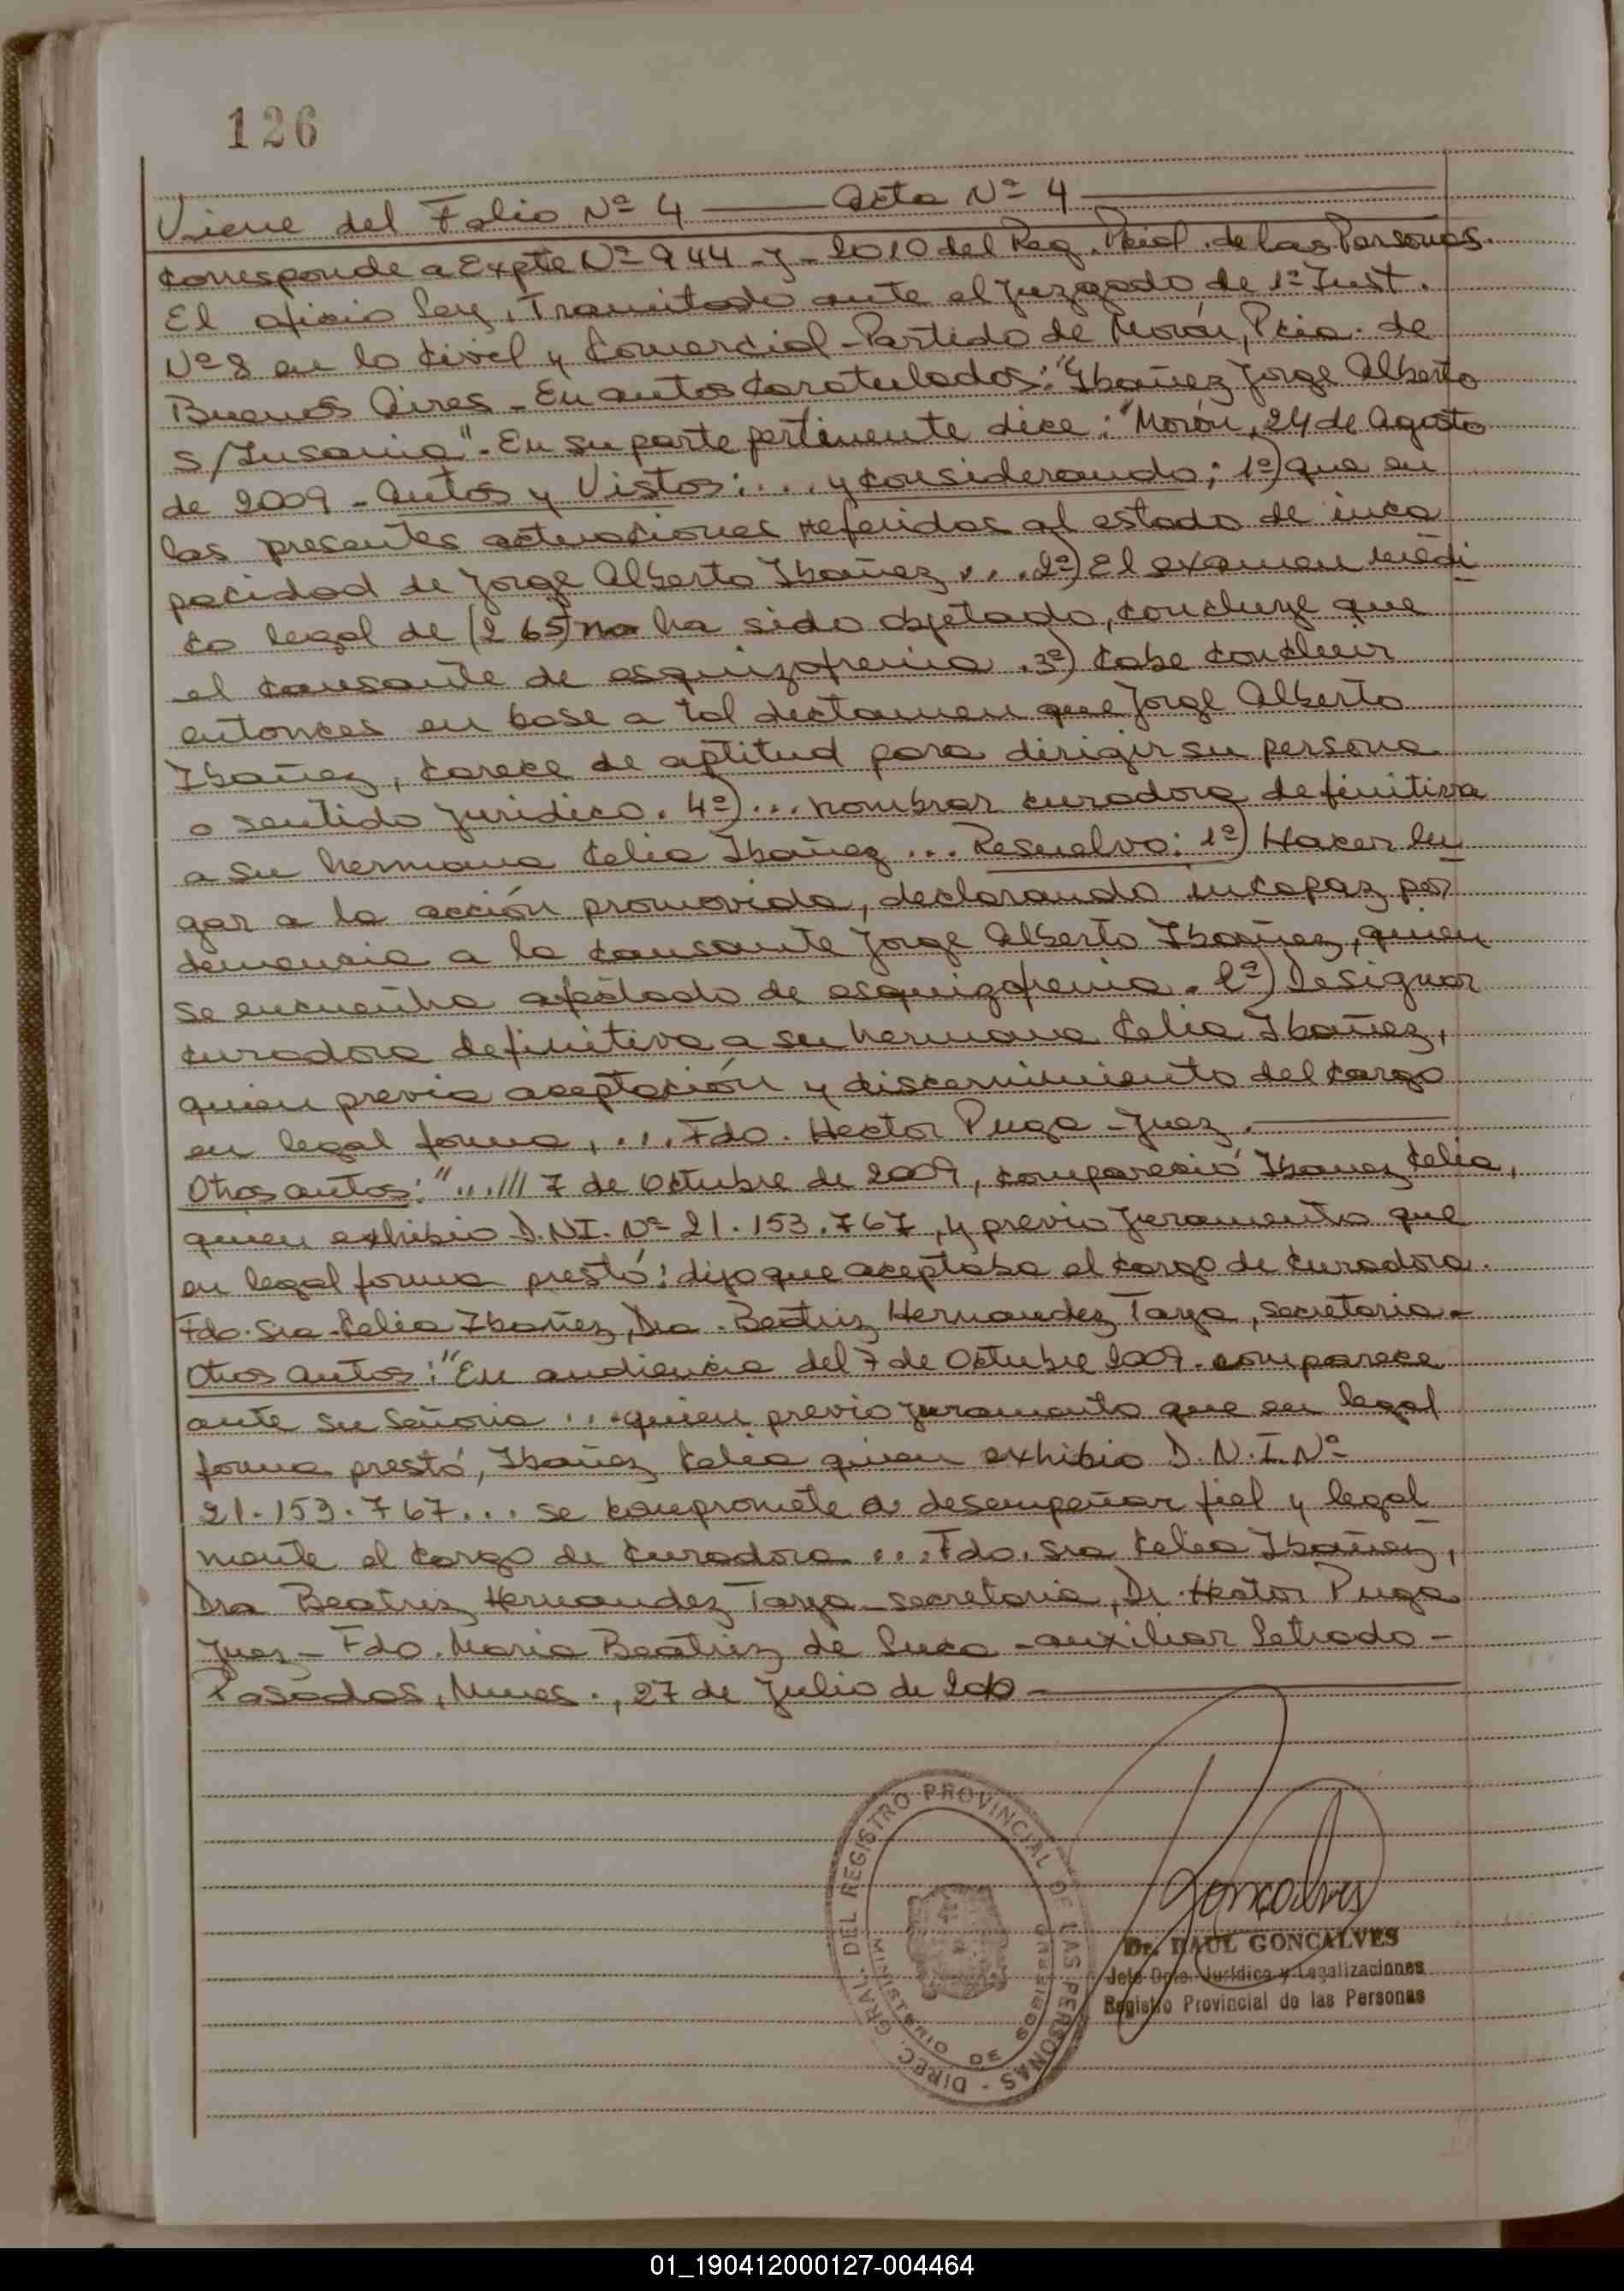 126
Viene del Folio Nº 4 — Acta Nº 4
Corresponde a Expte Nº 944-J-2010 del Reg. Pcial. de las Personas.
El oficio Ley, Tramitado ante el Juzgado de 1ª Inst.
Nº 8 en lo Civil y Comercial - Partido de Morón, Pcia. de
Buenos Aires - En autos caratulados: "Ibañez Jorge Alberto
s/Insania". En su parte pertinente dice: "Morón, 24 de Agosto
de 2009 - Autos y Vistos: ... y considerando; 1º) que en
las presentes actuaciones referidas al estado de inca
pacidad de Jorge Alberto Ibañez ... 2º) El examen médi
co legal de (265) no ha sido objetado, concluye que
el causante de esquizofrenia. 3º) Cabe concluir
entonces en base a tal dictamen que Jorge Alberto
Ibañez, carece de aptitud para dirigir su persona
o sentido jurídico. 4º) ... nombrar curadora definitiva
a su hermana Celia Ibañez ... Resuelvo: 1º) Hacer lu
gar a la acción promovida, declarando incapaz por
demencia a la causante Jorge Alberto Ibañez, quien
se encuentra afectado de esquizofrenia. 2º) Designar
curadora definitiva a su hermana Celia Ibañez,
quien previa aceptación y discernimiento del cargo
en legal forma, ... Fdo. Hector Puga - Juez.
Otros autos: ".../// 7 de Octubre de 2009, compareció Ibanez Celia,
quien exhibio D.NI. Nº 21.153.767, y previo juramento que
en legal forma prestó: dijo que aceptaba el cargo de curadora.
Fdo. Sra. Celia Ibañez, Dra. Beatriz Hernandez Tarza, secretaria -
Otros autos: "En audiencia del 7 de Octubre 2009 - comparece
ante su Señoria ... quien previo juramento que en legal
forma prestó, Ibañez Celia quien exhibio D.N.I. Nº
21.153.767... se compromete a desempeñar fiel y legal
mente el cargo de curadora ... Fdo. Sra Celia Ibañez,
Dra Beatriz Hernandez Tarza - secretaria, Dr. Hector Puga
Juez - Fdo. Maria Beatriz de Luca - auxiliar Letrado -
Posadas, Mnes., 27 de Julio de 2010 -
DIREC. GRAL. DEL REGISTRO PROVINCIAL DE LAS PERSONAS -
MINISTERIO DE GOBIERNO
Goncalves
Dr. RAUL GONCALVES
Jefe Dpto. Jurídico y Legalizaciones
Registro Provincial de las Personas
01_190412000127-004464